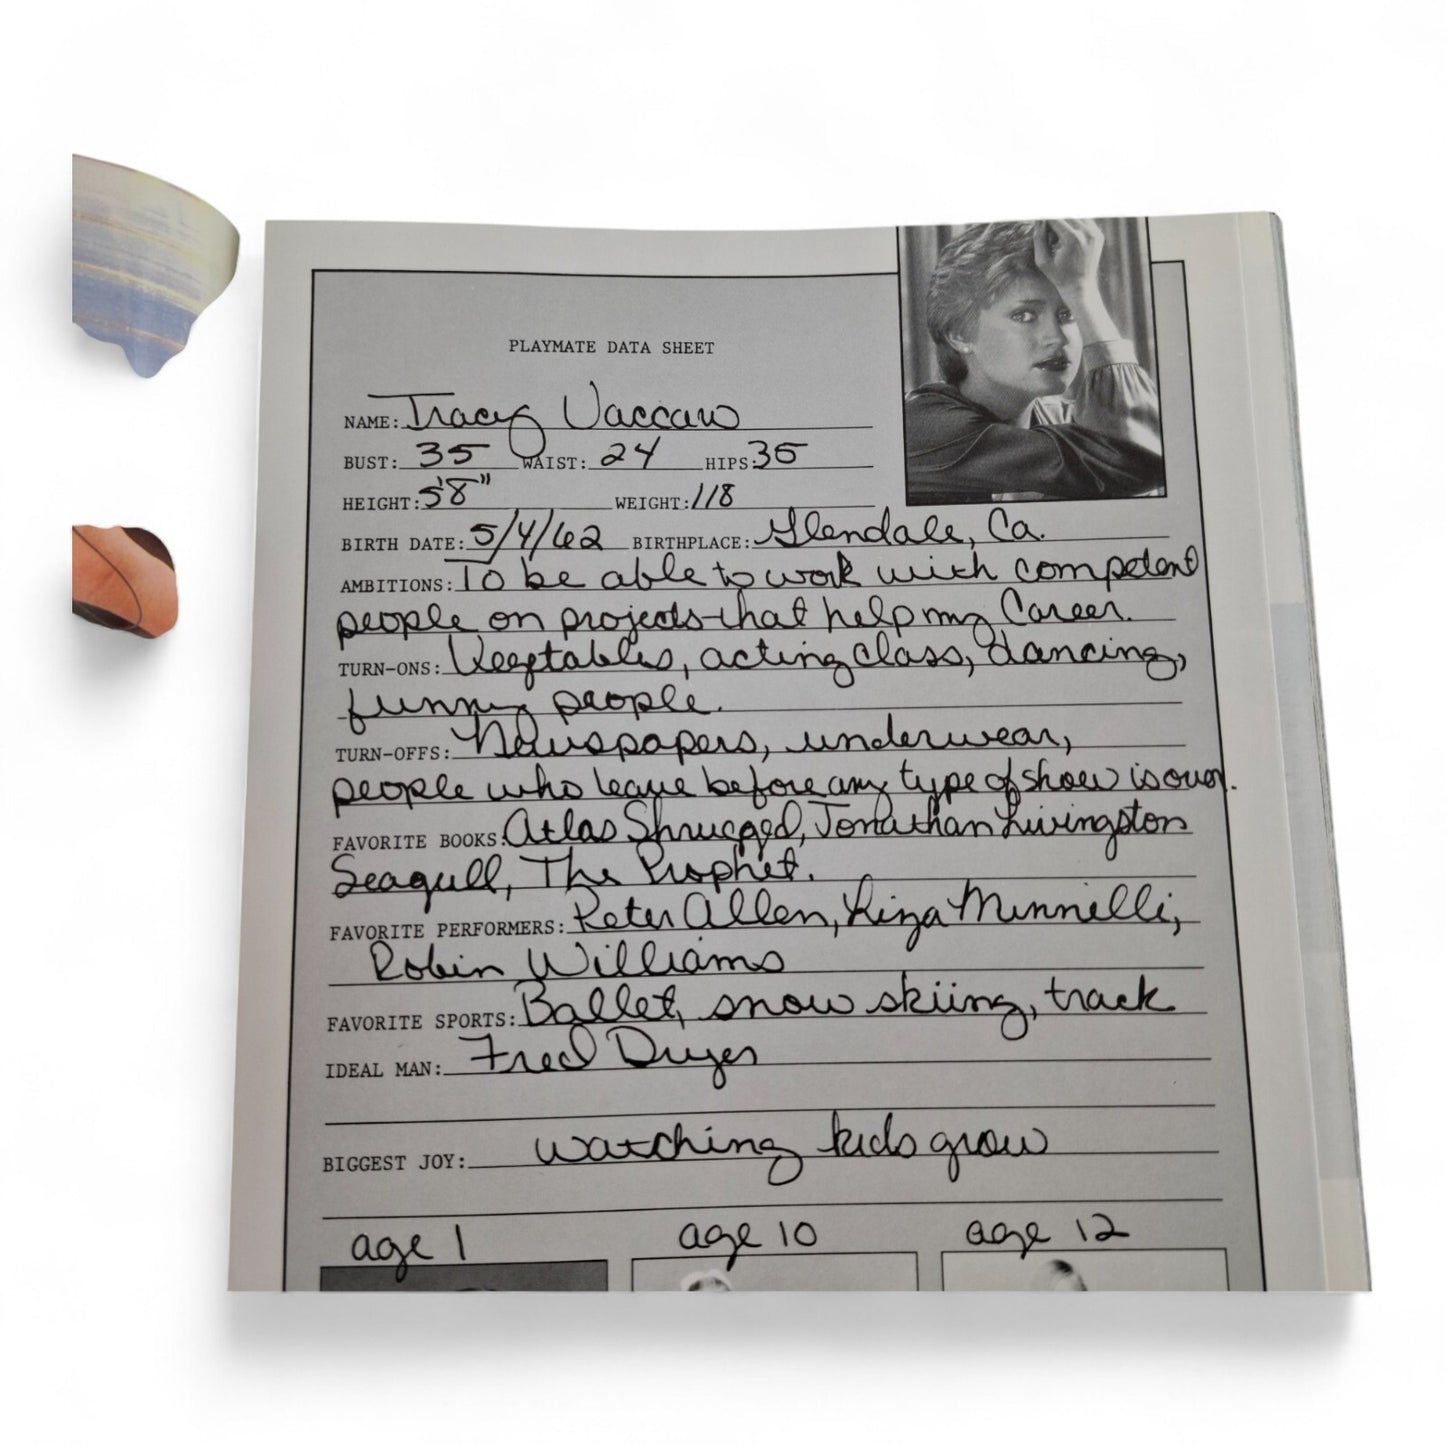 PLAYMATE DATA SHEET
NAME: Tracy Vaccaro
BUST: 35 WAIST: 24 HIPS: 35
HEIGHT: 5'8" WEIGHT: 118
BIRTH DATE: 5/4/62 BIRTHPLACE: Glendale, Ca.
AMBITIONS: To be able to work with competent
people on projects that help my Career.
TURN-ONS: Vegetables, acting class, dancing,
funny people.
TURN-OFFS: Newspapers, underwear,
people who leave before any type of show is over.
FAVORITE BOOKS: Atlas Shrugged, Jonathan Livingston
Seagull, The Prophet.
FAVORITE PERFORMERS: Peter Allen, Liza Minnelli,
Robin Williams
FAVORITE SPORTS: Ballet, snow skiing, track
IDEAL MAN: Fred Dryer
BIGGEST JOY: watching kids grow
age 1 age 10 age 12